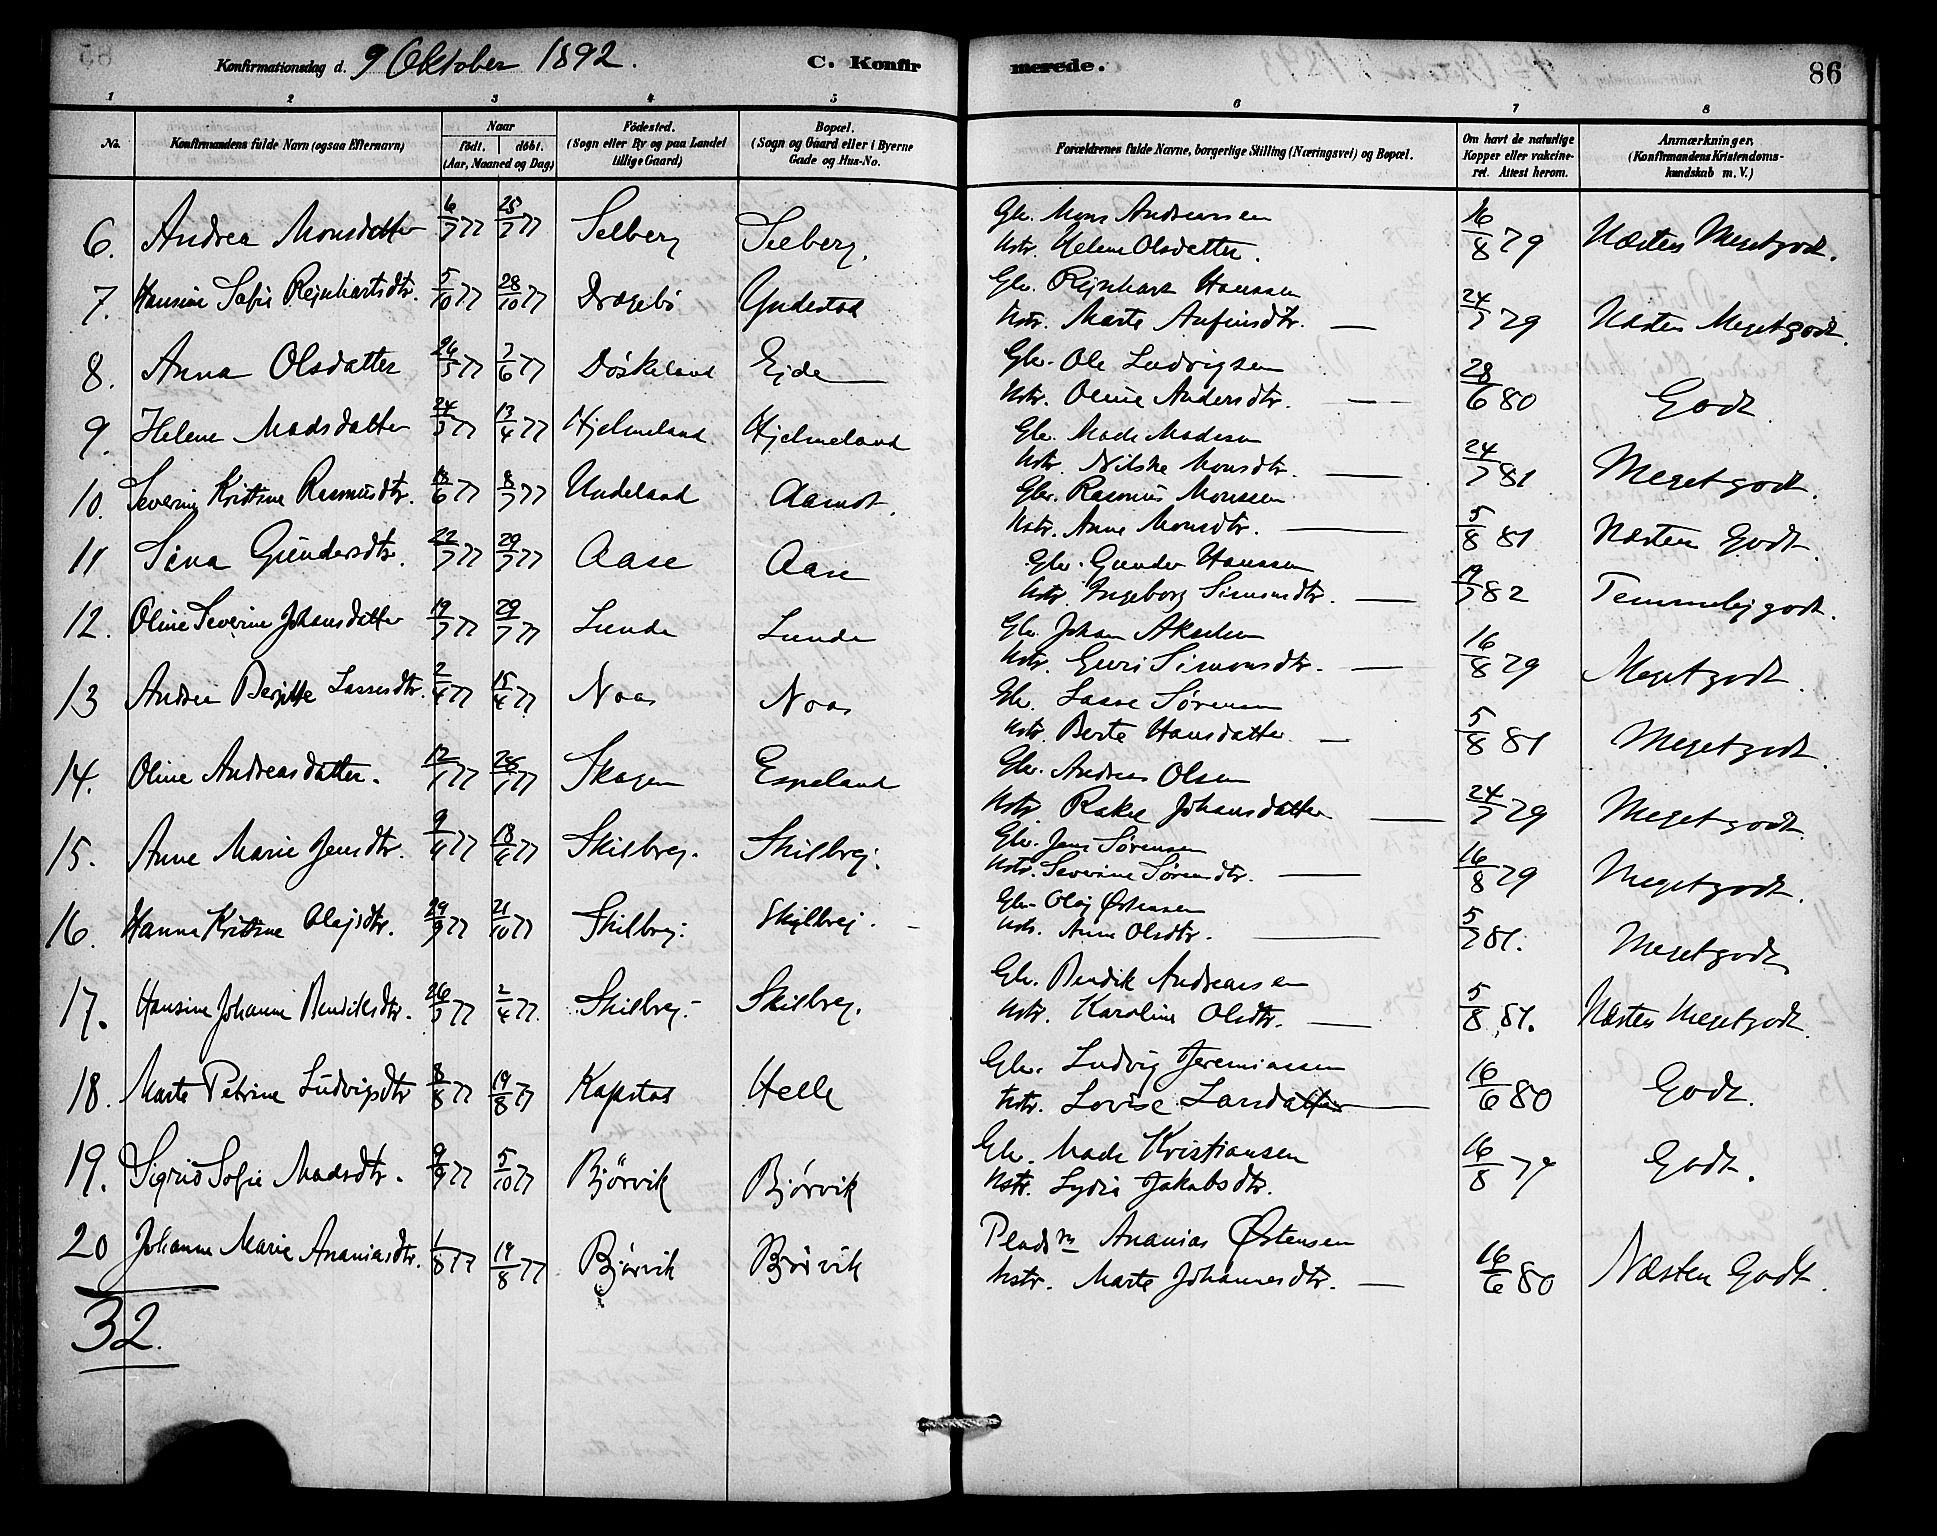 Konfirmationsdag d. 9 Oktober 1892. C. Konfirmerede. 86
1 2 3 4 5 6 7 8
No. Konfirmandens fulde Navn (ogsaa Efternavn) Naar födt. döbt. (Aar, Maaned og Dag) Födested. (Sogn eller By og paa Landet tillige Gaard) Bopæl. (Sogn og Gaard eller i Byerne Gade og Hus-No. Forældrenes fulde Navne, borgerlige Stilling (Næringsvei) og Bopæl. Om havt de naturlige Kopper eller vakcineret. Attest herom. Anmærkninger. (Konfirmandens Kristendomskundskab m. V.)
6. Andrea Monsdatter 6/7 77 25/7 77 Selberg Seeberg. Gbr. Mons Andreassen
Hstr. Helene Olsdatter. 16/8 79 Næsten Meget godt.
7. Hansine Sofie Rejnhartsdtr. 5/10 77 28/10 77 Dragebø Yndestad Gbr. Rejnhart Hanssen
Hstr. Marte Anfinsdtr. — 24/7 79 Næsten Meget godt.
8. Anna Olsdatter 26/5 77 7/6 77 Døskeland Ejde Gbr. Ole Ludvigsen
Hstr. Oline Andersdtr. — 28/6 80 Godt
9. Helene Madsdatter 24/3 77 13/4 77 Hjelmeland Hjelmeland Gbr. Mads Madssen
Hstr. Nilske Monsdtr. — 24/7 81 Meget godt.
10. Severine Kristine Rasmusdtr. 18/6 77 8/7 77 Undeland Aamot. Gbr. Rasmus Monssen
Hstr. Anne Monsdtr. — 5/8 81 Næsten Godt.
11 Sina Gundersdtr. 22/7 77 29/7 77 Aase Aase Gbr. Gunder Hanssen
Hstr. Ingeborg Simonsdtr. — 19/7 82 Temmelig godt.
12. Oline Severine Johansdatter 19/7 77 29/7 77 Lunde Lunde Gbr. Johan Akselsen
Hstr. Guri Simonsdtr. — 16/8 79 Meget godt.
13 Andrea Berjitte Lassesdtr. 2/4 77 15/4 77 Noas Noas Gbr. Lasse Sørensen
Hstr. Berte Hansdatter — 5/8 81 Meget godt.
14. Oline Andreasdatter. 12/1 77 28/1 77 Skogen Espeland Gbr. Andreas Olsen
Hstr. Rakel Johansdatter — 24/7 79 Meget godt.
15. Anne Marie Jensdtr. 9/4 77 18/4 77 Skilbrej. Skilbrej. Gbr. Jens Sørensen
Hstr. Severine Sørensdtr. — 16/8 79 Meget godt.
16. Hanna Kristine Olajsdtr. 29/9 77 21/10 77 Skilbrej. Skilbrej. Gbr. Olaj Østensen
Hstr. Anne Olsdtr. — 5/7 81. Meget godt
17. Hansine Johanne Bendiksdtr. 26/3 77 2/4 77. Skilbrej. Skilbrej. Gbr. Bendik Andreassen
Hstr. Karoline Olsdtr. — 5/8 81. Næsten Meget godt.
18. Marte Petrine Ludvigsdtr 8/8 77 19/8 77 Kapstad Helle Gbr. Ludvig Jeremiassen
Hstr. Lovise Larsdatter — 16/6 80 Godt.
19. Sigrid Sofie Madsdtr. 9/9 77 5/10 77 Bjørvik Bjørvik Gbr. Mads Kristiansen
Hstr. Lydia Jakobsdtr. 16/8 79 Godt.
20 Johanne Marie Ananiasdtr. 1/8 77 19/8 77 Bjørvik Bjørvik Pladsm Ananias Østensen
Hstr. Marte Johannesdtr. — 16/6 80 Næsten Godt.
32.